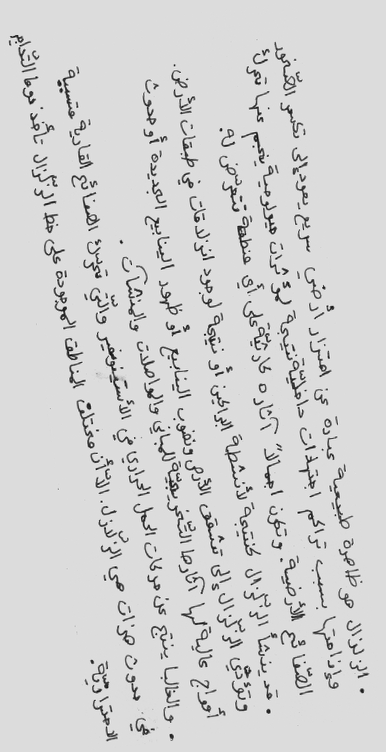 . الزلزال هو ظاهرة طبيعية عبارة عن اهتزاز أرضي سريع يعود إلى تكسر الصّخور
وإزاحتها بسبب تراكم اجتهادات داخليّة نتيجة لمؤثرات جيولوجية ينجم عنها تحرك
الصّفائح الأرضية. وتكون اجمالاً آثاره كارثيّة على أي منطقة تتعرّض له.
. قد ينشأ الزلزال كنتيجة لأنشطة البراكين أو نتيجة لوجود انزلاقات في طبقات الأرض.
وتؤدّي الزلازل إلى تشقق الأرض ونضوب الينابيع أو ظهور الينابيع الجديدة أو حدوث
أمواج عالية لها آثارها التّخريبيّة للمباني والمواصلات والمنشآت.
. والغالبا ينتج عن حركات الحمل الحراري في الأستينوسفير والّتي تحرك الصفائح القارية متسببة
في حدوث هزات هي الزّلازل. الآن مختلف المناطق الموجودة على خط الزلزال تأخذ نوعا التّدابير
الاحترازيّة.